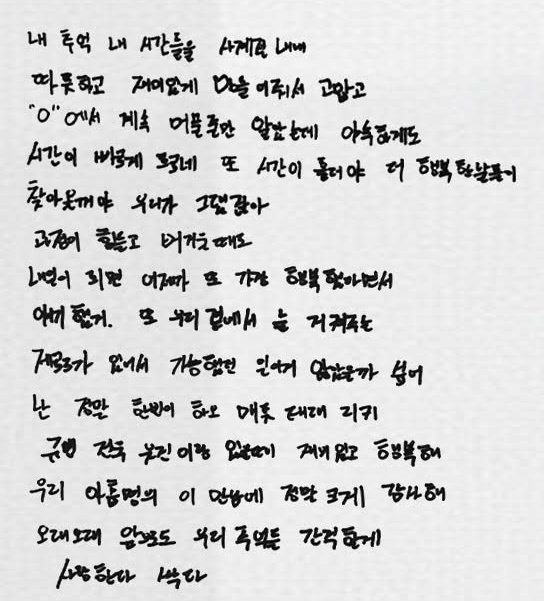 내 추억 내 시간들을 사계절 내내
따뜻하고 재미있게 만들어줘서 고맙고
"0"에서 계속 머물줄만 알았는데 야속하게도
시간이 빠르게 흐르네 또 시간이 흘러야 더 행복한 날들이
찾아올꺼야 우리가 그랬잖아
과정이 힘들고 버거울때도
내년이 되면 어제가 또 가장 행복했다면서
얘기했지. 또 우리 곁에서 늘 지켜주는
제로즈가 있어서 가능했던 일이지 않았을까 싶어
난 정말 한빈이 하오 매튜 태래 리키
규빈 건욱 유진이랑 있을때 재미있고 행복해
우리 아홉명의 이 만남에 정말 크게 감사해
오래오래 앞으로도 우리 추억들 간직할게
사랑한다 싹다